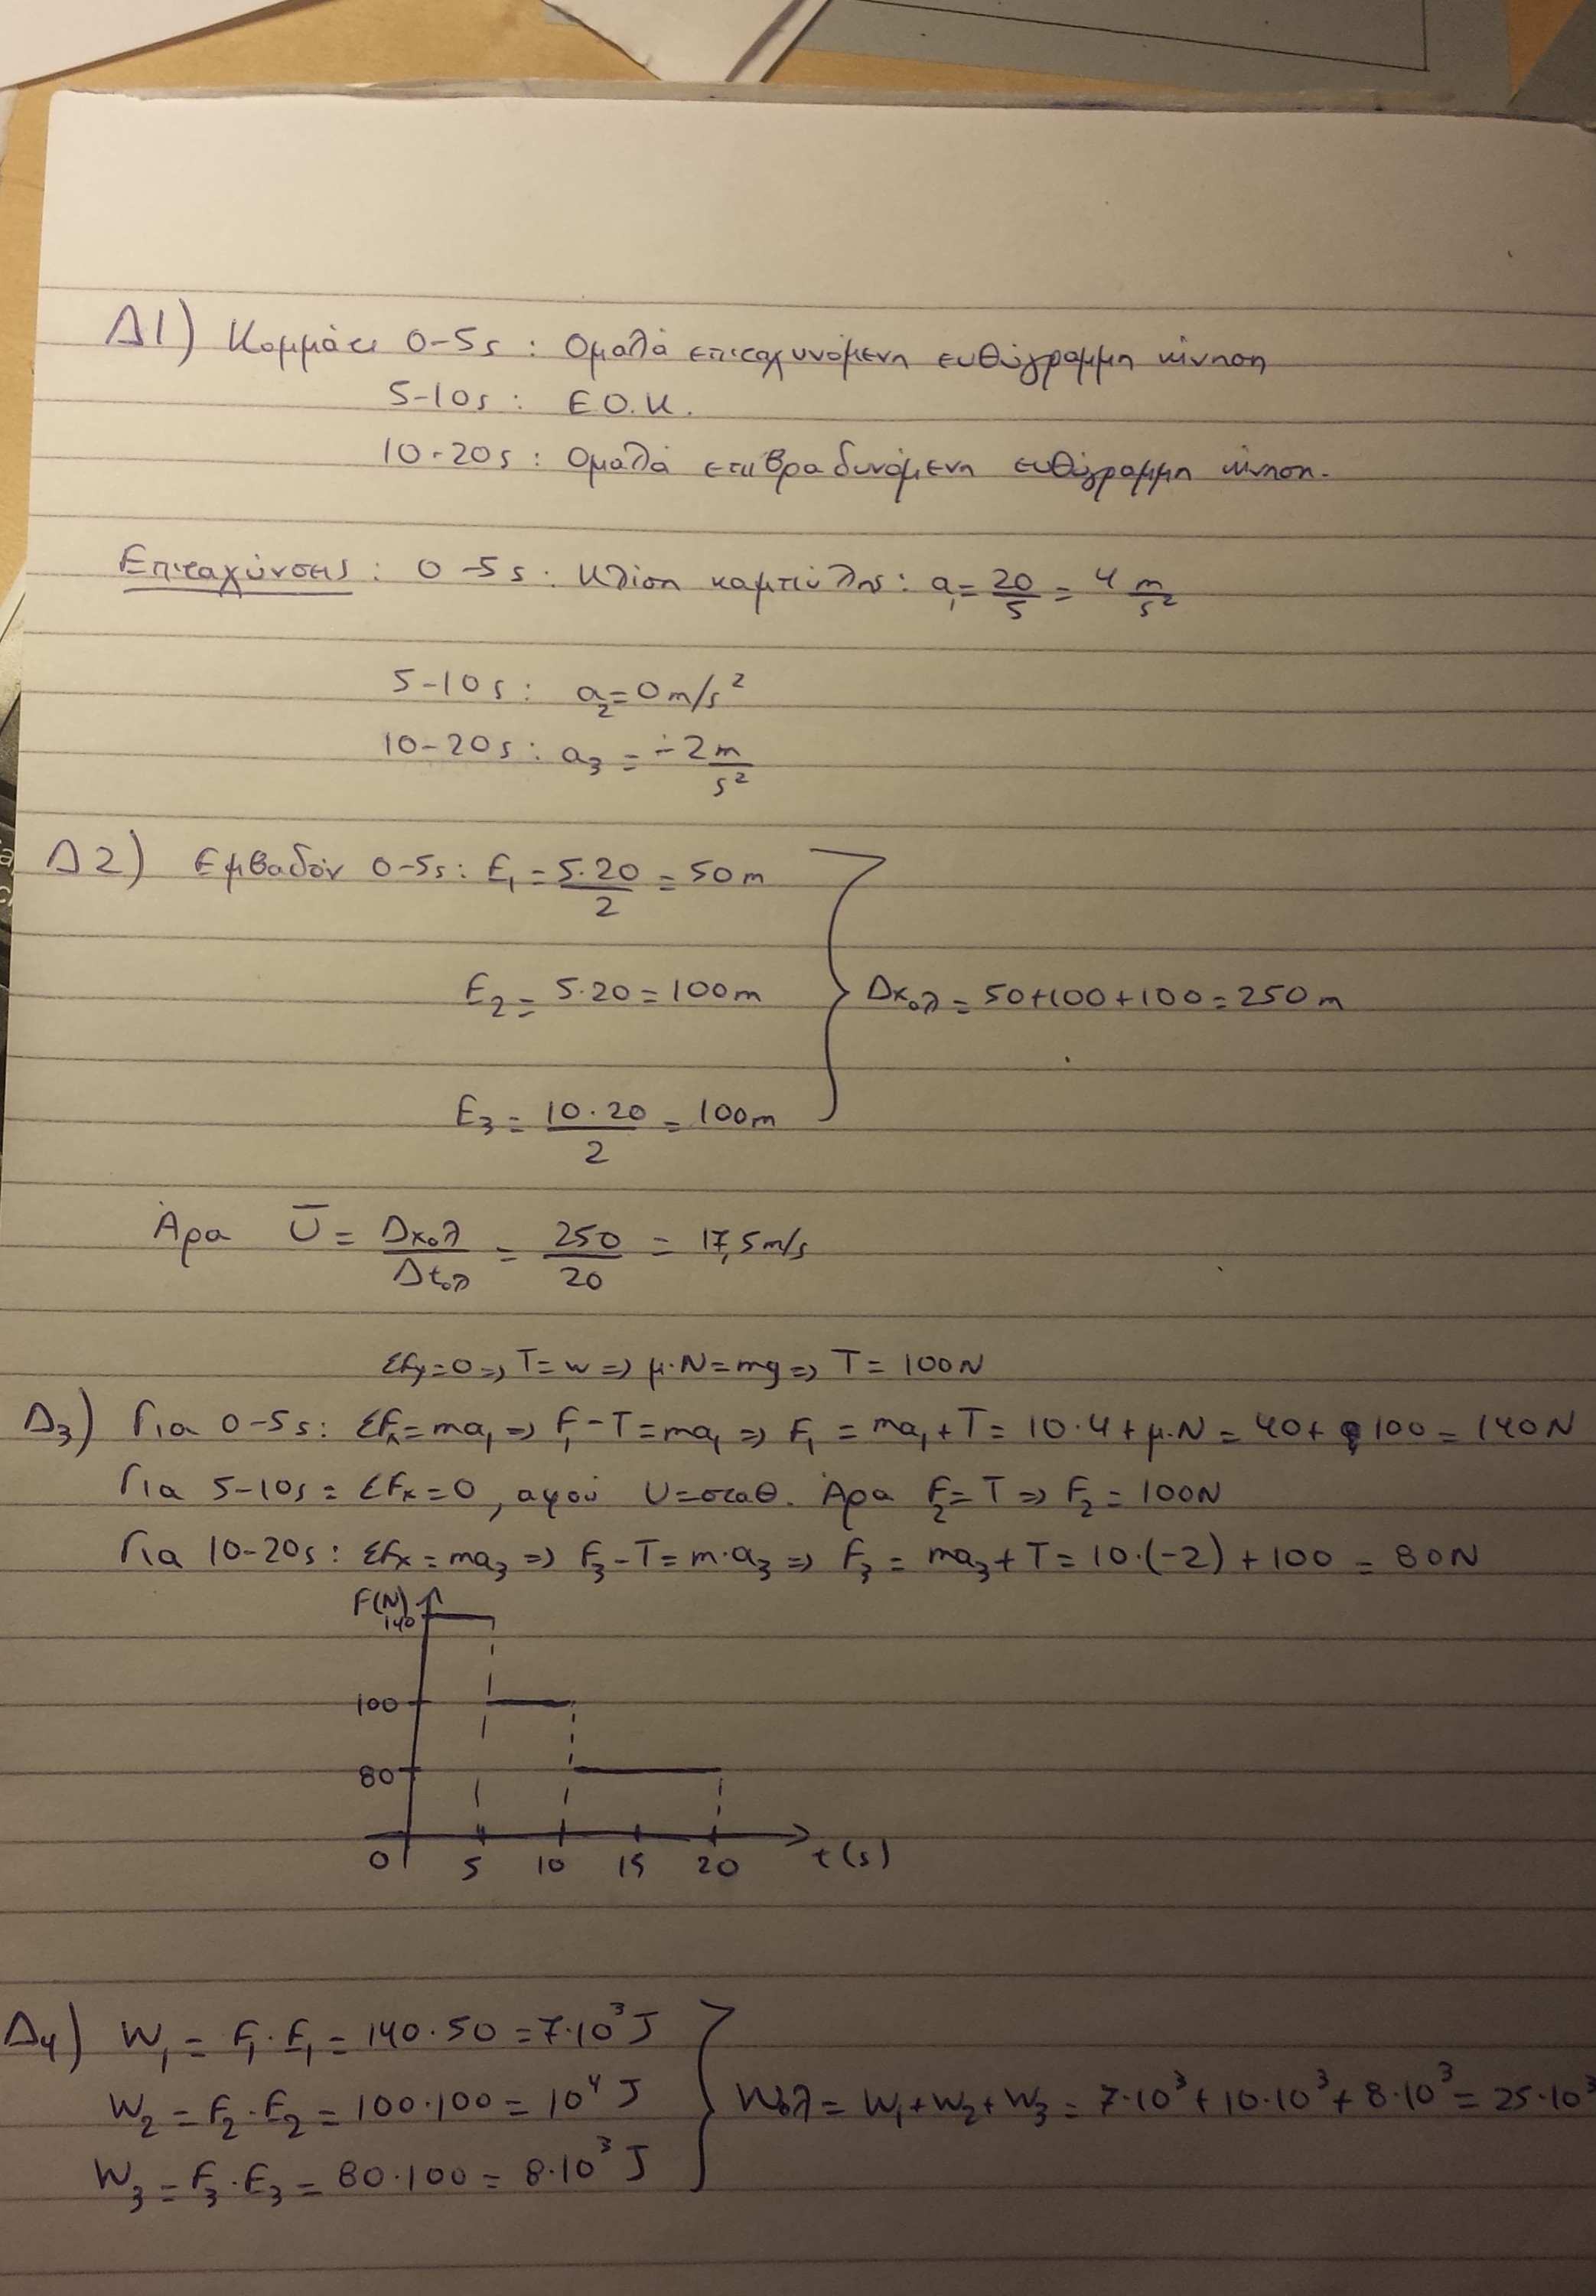 Δ1) Κομμάτι 0-5s : Ομαλά επιταχυνόμενη ευθύγραμμη κίνηση
5-10s : Ε.Ο.Κ.
10-20s : Ομαλά επιβραδυνόμενη ευθύγραμμη κίνηση.
Επιταχύνσεις : 0-5s : Κλίση καμπύλης : a₁ = 20/5 = 4 m/s²
5-10s : a₂ = 0 m/s²
10-20s : a₃ = -2 m/s²
Δ2) Εμβαδόν 0-5s : E₁ = 5·20/2 = 50m
E₂ = 5·20 = 100m
Δxολ = 50+100+100 = 250m
E₃ = 10·20/2 = 100m
Άρα Ū = Δxολ/Δtολ = 250/20 = 17,5 m/s
ΣFy=0 => T=w => μ·N=mg => T= 100N
Δ3) Για 0-5s : ΣFx=ma₁ => F₁-T=ma₁ => F₁ = ma₁+T = 10·4+μ·N = 40+100 = 140N
Για 5-10s = ΣFx=0, αφού U=σταθ. Άρα F₂=T => F₂=100N
Για 10-20s : ΣFx = ma₃ => F₃-T=m·a₃ => F₃ = ma₃+T = 10·(-2)+100 = 80N
F(N)
140
100
80
0 5 10 15 20 t(s)
Δ4) W₁ = F₁·E₁ = 140·50 = 7·10³ J
W₂ = F₂·E₂ = 100·100 = 10⁴ J
Wολ = W₁+W₂+W₃ = 7·10³+10·10³+8·10³ = 25·10³
W₃ = F₃·E₃ = 80·100 = 8·10³ J